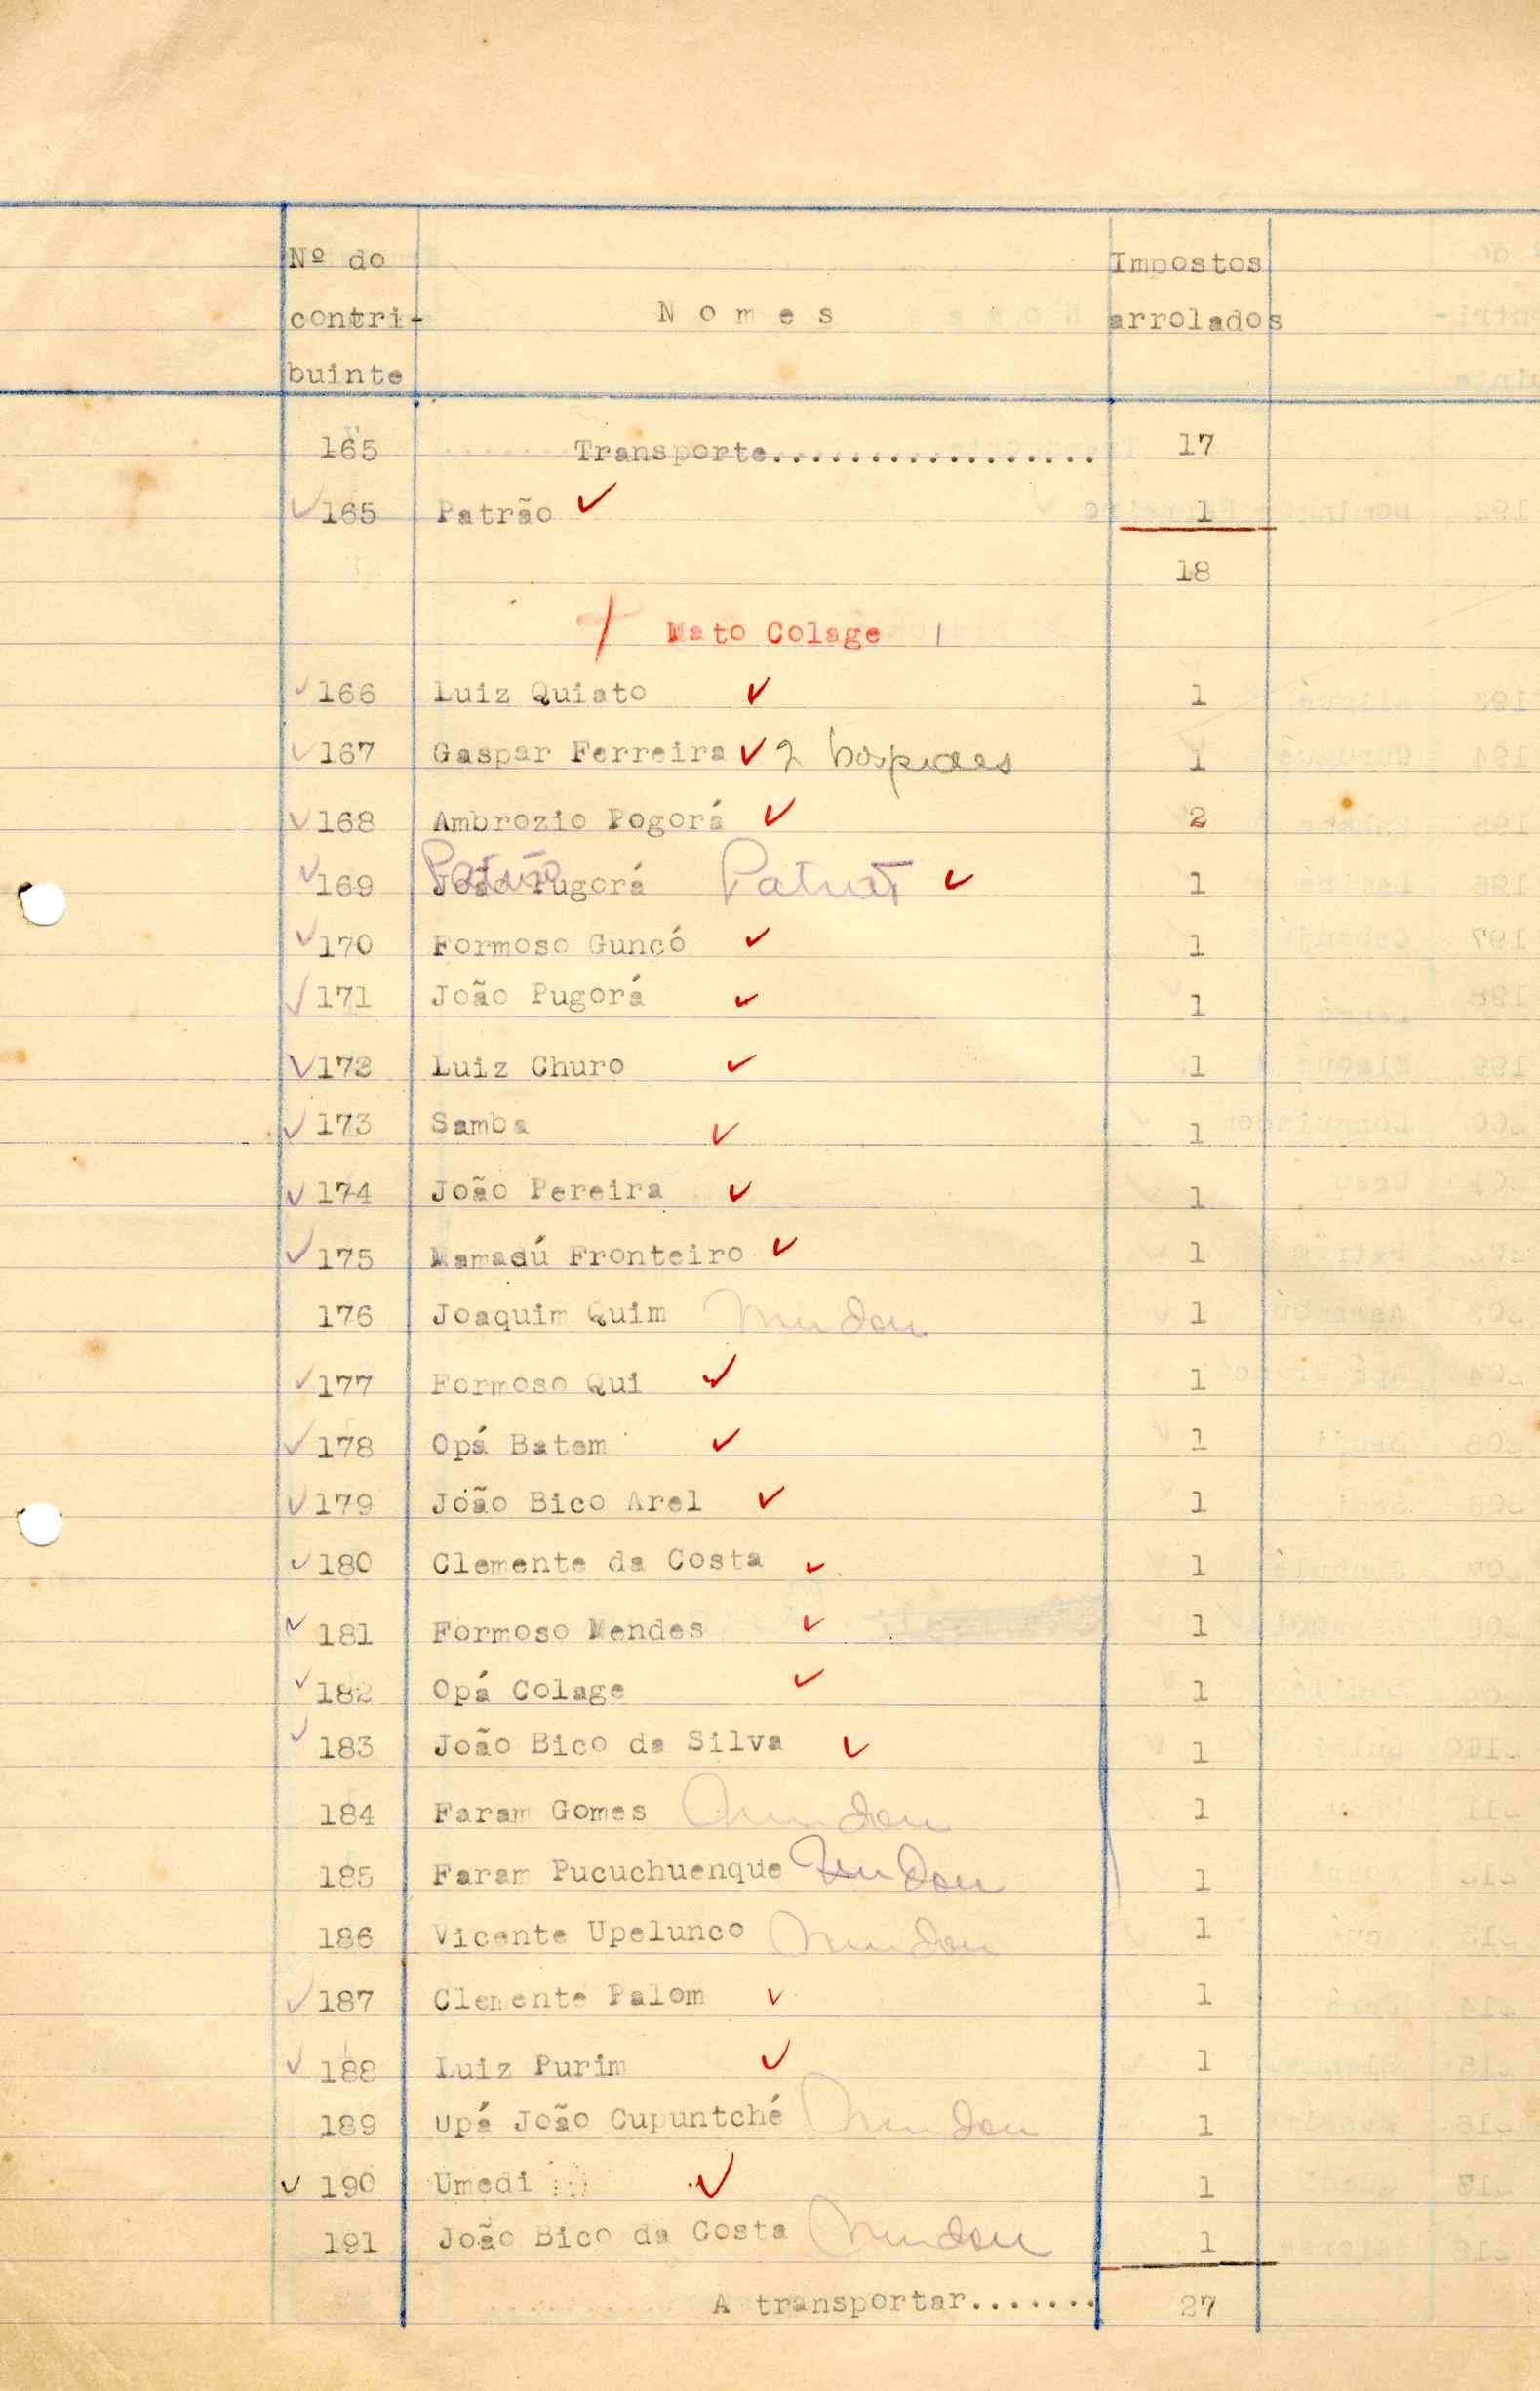 Nº do
contri-
buinte
N o m e s
Impostos
arrolados
165 Transporte.................. 17
✓ 165 Patrão ✓ 1
18
+ Mato Colage
✓ 166 Luiz Quiato ✓ 1
✓ 167 Gaspar Ferreira ✓ 2 hospedes 1
✓ 168 Ambrozio Pogorá ✓ 2
✓ 169 João Pugorá ✓ 1
✓ 170 Formoso Guncó ✓ 1
✓ 171 João Pugorá ✓ 1
✓ 172 Luiz Churo ✓ 1
✓ 173 Samba ✓ 1
✓ 174 João Pereira ✓ 1
✓ 175 Mamadú Fronteiro ✓ 1
176 Joaquim Quim Mudou 1
✓ 177 Formoso Qui ✓ 1
✓ 178 Opá Batem ✓ 1
✓ 179 João Bico Arel ✓ 1
✓ 180 Clemente da Costa ✓ 1
✓ 181 Formoso Mendes ✓ 1
✓ 182 Opá Colage ✓ 1
✓ 183 João Bico da Silva ✓ 1
184 Faram Gomes Mudou 1
185 Faram Pucuchuenque Mudou 1
186 Vicente Upelunco Mudou 1
✓ 187 Clemente Palom ✓ 1
✓ 188 Luiz Purim ✓ 1
189 Upá João Cupuntché Mudou 1
✓ 190 Umedi ✓ 1
191 João Bico da Costa Mudou 1
A transportar....... 27